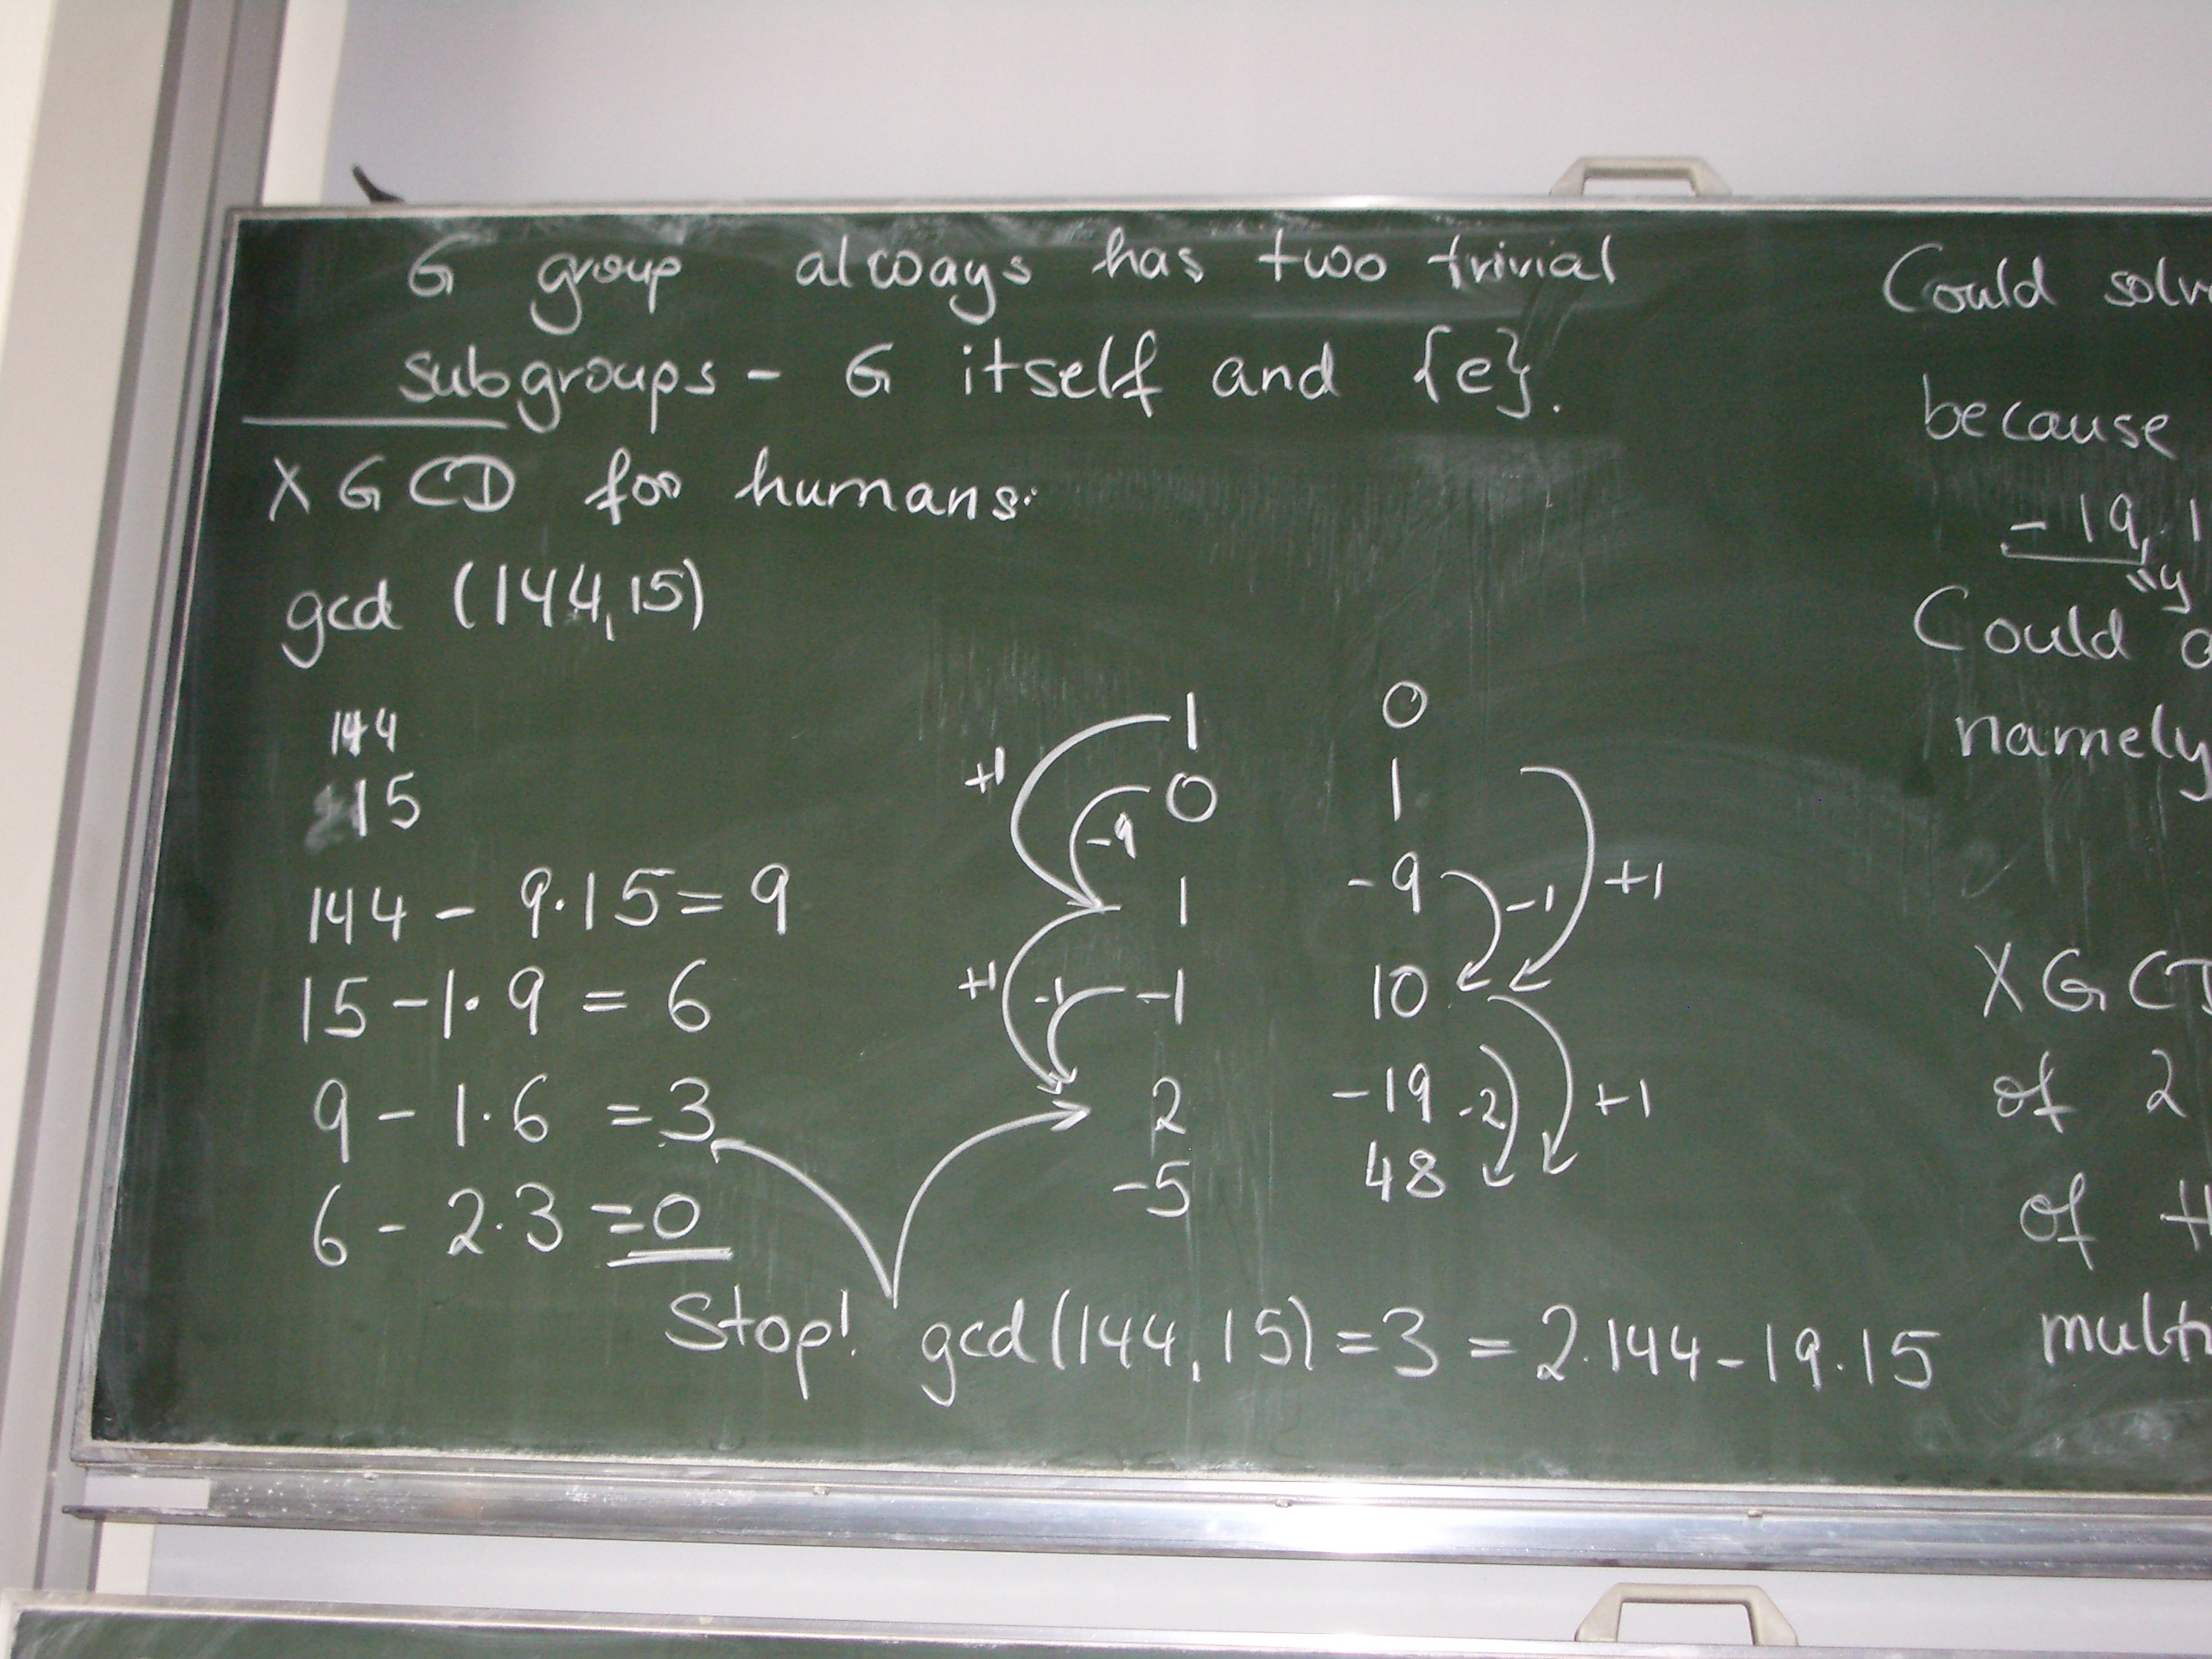 G group always has two trivial
subgroups - G itself and {e}.
XGCD for humans:
gcd (144,15)
144 1 0
15 0 1
+1 -9
144 - 9·15 = 9 1 -9 -1 +1
15 - 1·9 = 6 -1 10
+1 -1
9 - 1·6 = 3 2 -19 -2 +1
6 - 2·3 = 0 -5 48
Stop! gcd(144,15) = 3 = 2·144 - 19·15
Could
because
-19·1
"y
Could
namely
XGCD
of 2
of